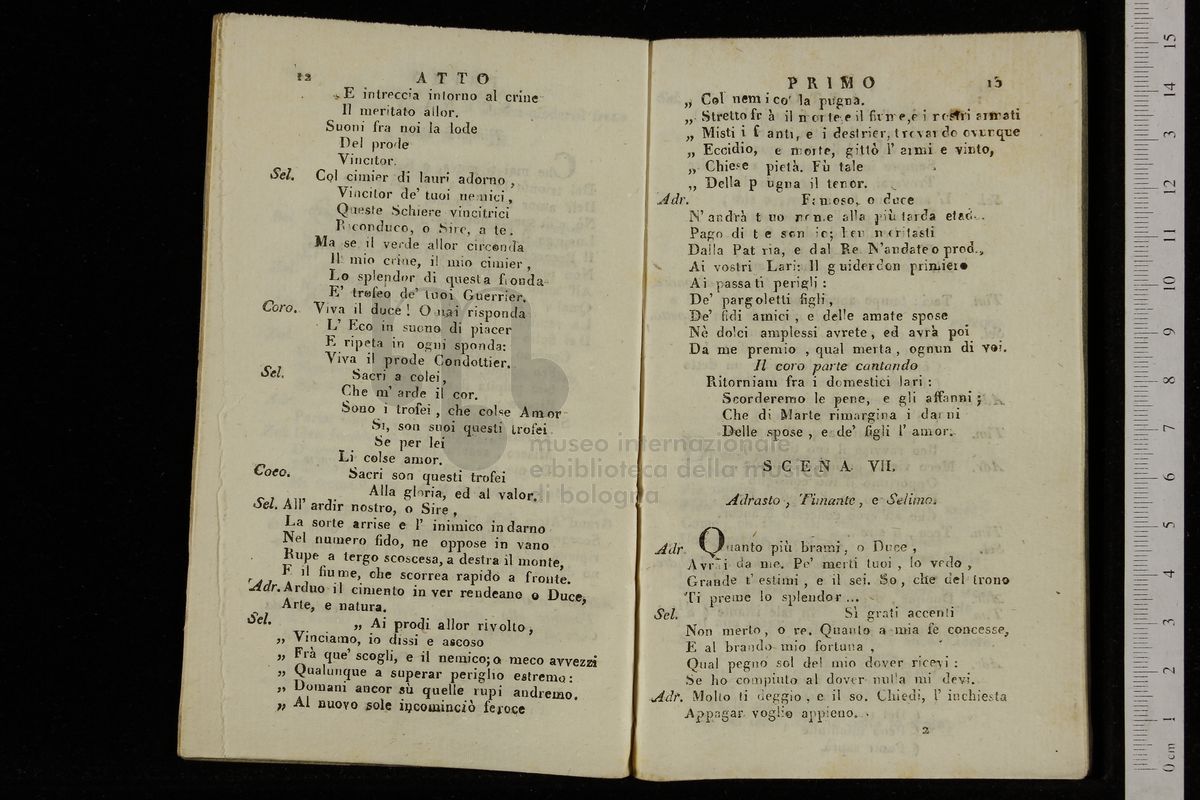 12 ATTO
E intreccia intorno al crine
Il meritato allor.
Suoni fra noi la lode
Del prode
Vincitor.
Sel. Col cimier di lauri adorno ,
Vincitor de' tuoi nemici ,
Queste Schiere vincitrici
Riconduco, o Sire, a te .
Ma se il verde allor circonda
Il mio crine, il mio cimier ,
Lo splendor di questa fronda
E' trofeo de' tuoi Guerrier.
Coro. Viva il duce ! Omai risponda
L' Eco in suono di piacer
E ripeta in ogni sponda:
Viva il prode Condottier.
Sel. Sacri a colei,
Che m' arde il cor.
Sono i trofei , che colse Amor
Si, son suoi questi trofei
Se per lei
Li colse amor.
Coeo. Sacri son questi trofei
Alla gloria, ed al valor.
Sel. All' ardir nostro, o Sire ,
La sorte arrise e l' inimico indarno
Nel numero fido, ne oppose in vano
Rupe a tergo scoscesa, a destra il monte,
E il fiume, che scorrea rapido a fronte.
Adr. Arduo il cimento in ver rendeano o Duce,
Arte, e natura.
Sel. „ Ai prodi allor rivolto ,
„ Vinciamo, io dissi e ascoso
„ Frà que' scogli, e il nemico; o meco avvezzi
„ Qualunque a superar periglio estremo:
„ Domani ancor sù quelle rupi andremo.
„ Al nuovo sole incominciò feroce
PRIMO 13
„ Col nemico la pugna.
„ Stretto fr à il monte e il fiume, e i rostri armati
„ Misti i f anti, e i destrier, trovando ovunque
„ Eccidio, e morte, gittò l' armi e vinto,
„ Chiese pietà. Fù tale
„ Della p ugna il tenor.
Adr. Famoso, o duce
N' andrà t uo nome alla più tarda etad.
Pago di t e son io; ben meritasti
Dalla Pat ria, e dal Re N'andate o prodi,
Ai vostri Lari: Il g uiderdon primiero
Ai passati perigli :
De' pargoletti figli ,
De' fidi amici , e delle amate spose
Nè dolci amplessi avrete, ed avrà poi
Da me premio , qual merta , ognun di voi.
Il coro parte cantando
Ritorniam fra i domestici lari :
Scorderemo le pene, e gli affanni ;
Che di Marte rimargina i danni
Delle spose , e de' figli l' amor.
SCENA VII.
Adrasto , Timante, e Selimo.
Adr. Quanto più brami, o Duce ,
Avrai da me. Pe' merti tuoi , lo vedo ,
Grande t' estimi , e il sei. So , che del trono
Ti preme lo splendor ...
Sel. Sì grati accenti
Non merto, o re. Quanto a mia fè concesse,
E al brando mio fortuna ,
Qual pegno sol del mio dover ricevi :
Se ho compiuto al dover nulla mi devi.
Adr. Molto ti deggio , e il so. Chiedi, l' inchiesta
Appagar voglio appieno.
2
museo internazionale
e biblioteca della musica
di bologna
15
14
13
12
11
10
9
8
7
6
5
4
3
2
1
0 cm